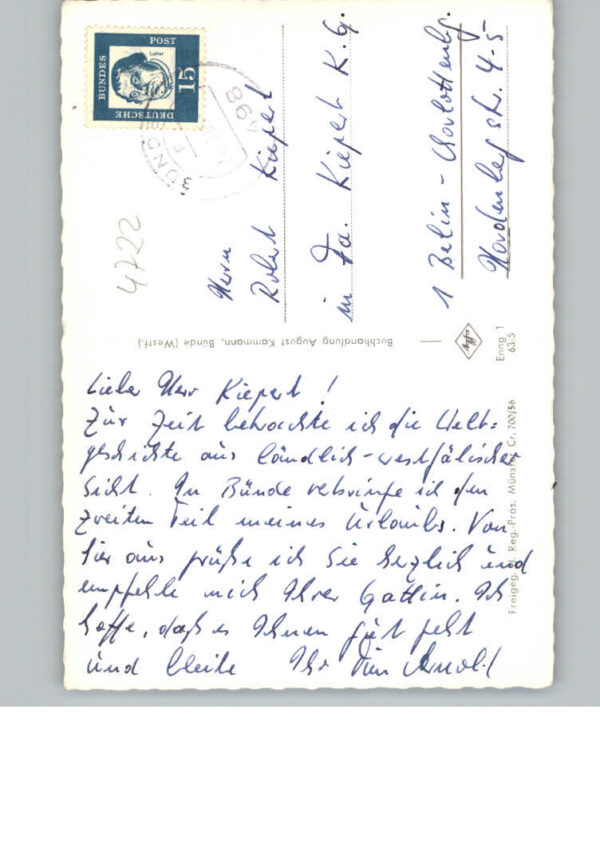 DEUTSCHE
BUNDES
POST
Luther
15
BÜNDE
498
4722
Herrn
Robert Kiepert
in Fa. Kiepert K.G.
1 Berlin-Charlottenbg.
Hardenbergstr. 4-5
Buchhandlung August Kammann, Bünde (Westf.)
Agfa
Enng 1
63:5
Freigeg. d. Reg.-Präs. Münster Cr. 700/56
Lieber Herr Kiepert!
Zur Zeit betrachte ich die Welt=
geschichte aus ländlich-westfälischer
Sicht. In Bünde verbringe ich den
zweiten Teil meines Urlaubs. Von
hier aus grüße ich Sie herzlich und
empfehle mich Ihrer Gattin. Ich
hoffe, daß es Ihnen gut geht
und bleibe Ihr Arnold